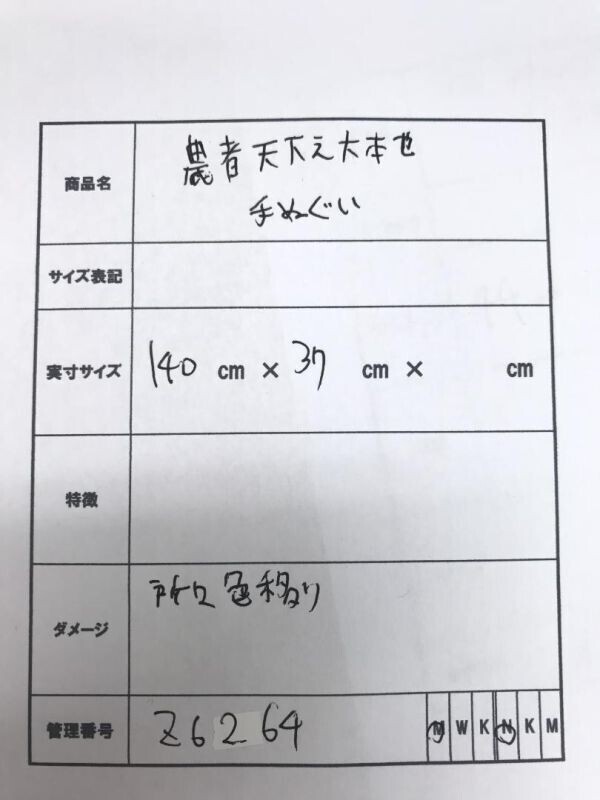 商品名 農者天下之大本也
手ぬぐい
サイズ表記
実寸サイズ 140 cm × 37 cm × cm
特徴
ダメージ 所々色移り
管理番号 Z6264 M W K N K M